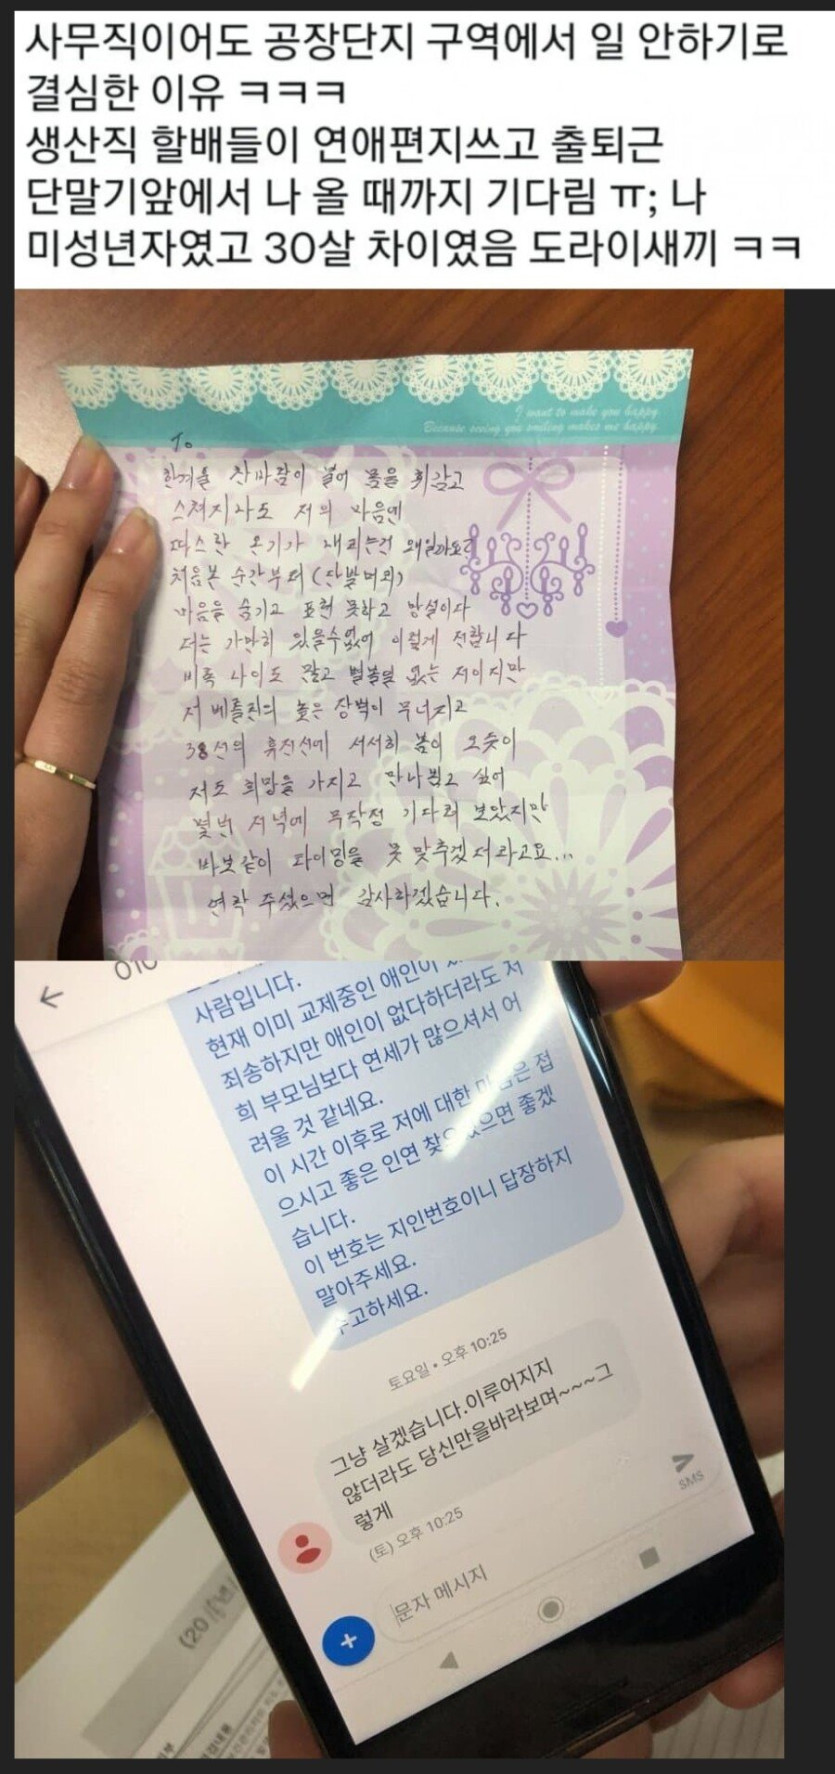 사무직이어도 공장단지 구역에서 일 안하기로
결심한 이유 ㅋㅋㅋ
생산직 할배들이 연애편지쓰고 출퇴근
단말기앞에서 나 올 때까지 기다림 ㅠ; 나
미성년자였고 30살 차이였음 도라이새끼 ㅋㅋ
I want to make you happy.
Because seeing you smiling makes me happy.
To
한겨울 찬바람이 불어 몸을 휘감고
스쳐지나도 저의 마음엔
따스한 온기가 내리는건 왜일까요?
처음본 순간부터 (단발머리)
마음을 숨기고 표현 못하고 망설이다
더는 가만히 있을수없어 이렇게 전합니다
비록 나이도 많고 별볼일 없는 저이지만
저 베를린의 높은 장벽이 무너지고
38선의 휴전선에 서서히 봄이 오듯이
저도 희망을 가지고 만나뵙고 싶어
몇번 저녁에 무작정 기다려 보았지만
바보같이 타이밍을 못 맞추겠더라고요...
연락 주셨으면 감사하겠습니다.
010
사람입니다.
현재 이미 교제중인 애인이
죄송하지만 애인이 없다하더라도 저
희 부모님보다 연세가 많으셔서 어
려울 것 같네요.
이 시간 이후로 저에 대한 은 접
으시고 좋은 인연 찾으 으면 좋겠
습니다.
이 번호는 지인번호이니 답장하지
말아주세요.
수고하세요.
토요일 • 오후 10:25
그냥 살겠습니다.이루어지지
않더라도 당신만을바라보며~~~그
렇게
(토) 오후 10:25
문자 메시지
SMS
(20